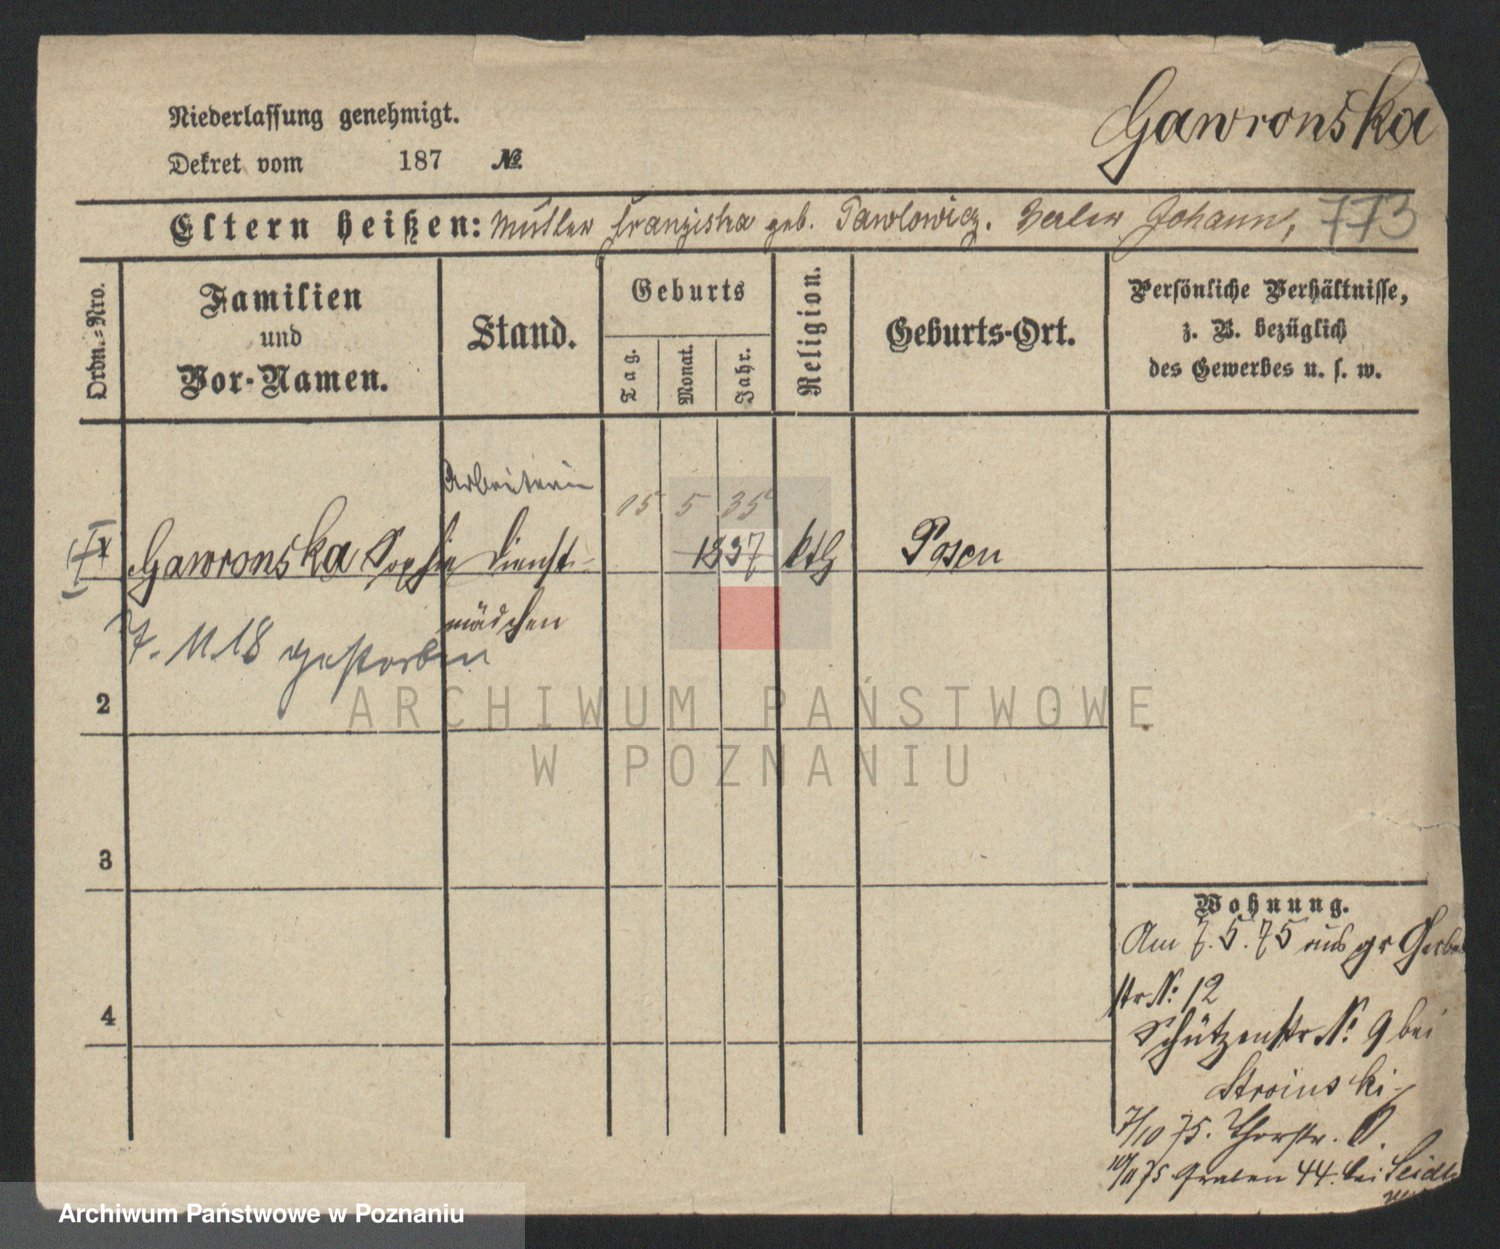 Niederlassung genehmigt.
Gawronska
Dekret vom 187 №
Eltern heißen: Mutter Franziska geb. Pawlowicz. Vater Johann, 773
Ordn.-Nro.
Familien
und
Vor-Namen.
Stand.
Geburts
Tag.
Monat.
Jahr.
Religion.
Geburts-Ort.
Persönliche Verhältnisse,
z. B. bezüglich
des Gewerbes u. s. w.
Arbeiterin
15 5 35
Gawronska Sophie Dienst- 1837 kth Posen
mädchen
7. 11. 18 gestorben
2
3
4
Wohnung.
Am 7. 5. 75 aus gr Gerber
str № 12
Schützenstr № 9 bei
Stroinski
7/10 75. Thorstr.
10/11 75 Graben 44. bei
ARCHIWUM PAŃSTWOWE
W POZNANIU
Archiwum Państwowe w Poznaniu